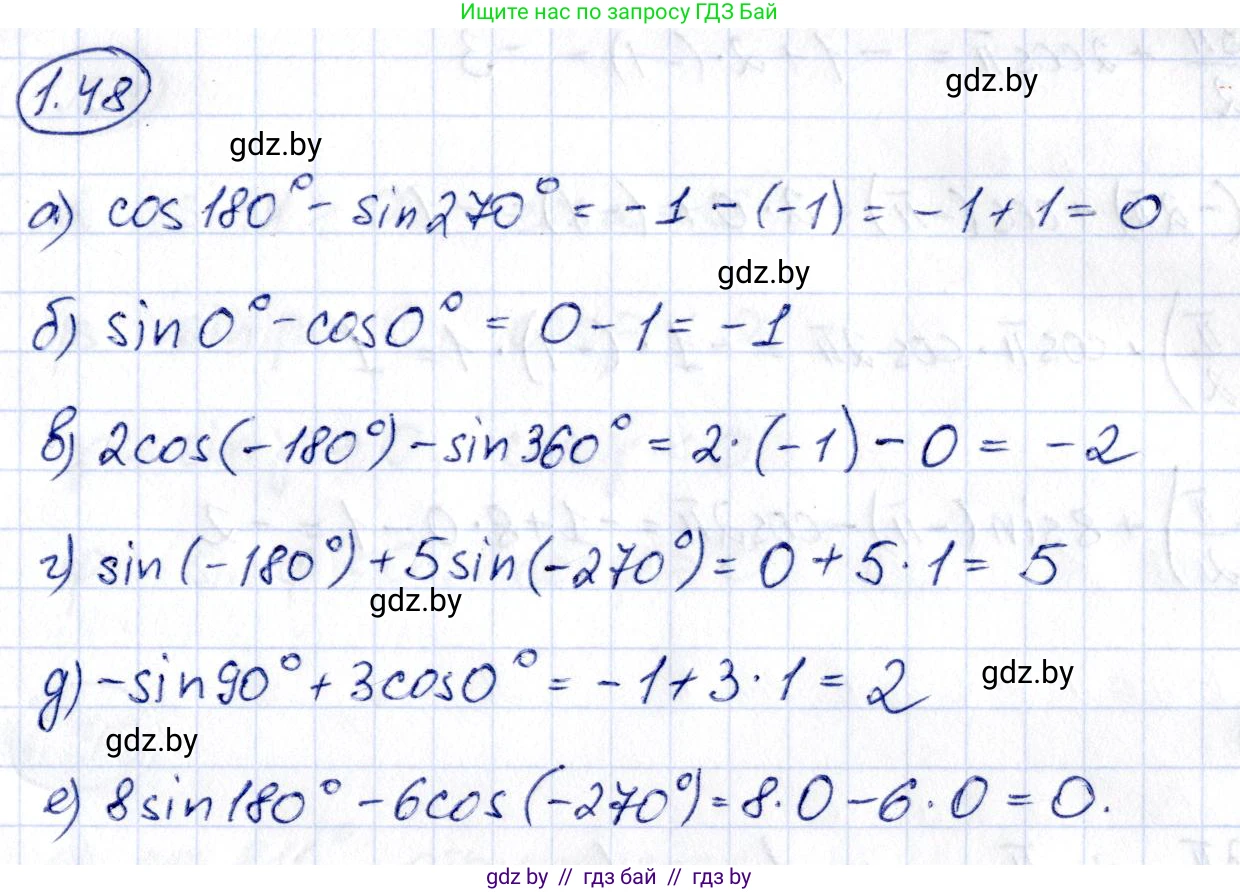 Ищите нас по запросу ГДЗ Бай
1.48
gdz.by
gdz.by
а) cos180° - sin270° = -1 - (-1) = -1 + 1 = 0
gdz.by
б) sin0° - cos0° = 0 - 1 = -1
в) 2cos(-180°) - sin360° = 2·(-1) - 0 = -2
г) sin(-180°) + 5sin(-270°) = 0 + 5·1 = 5
gdz.by
д) -sin90° + 3cos0° = -1 + 3·1 = 2
gdz.by
gdz.by
е) 8sin180° - 6cos(-270°) = 8·0 - 6·0 = 0.
gdz.by // гдз бай // гдз by